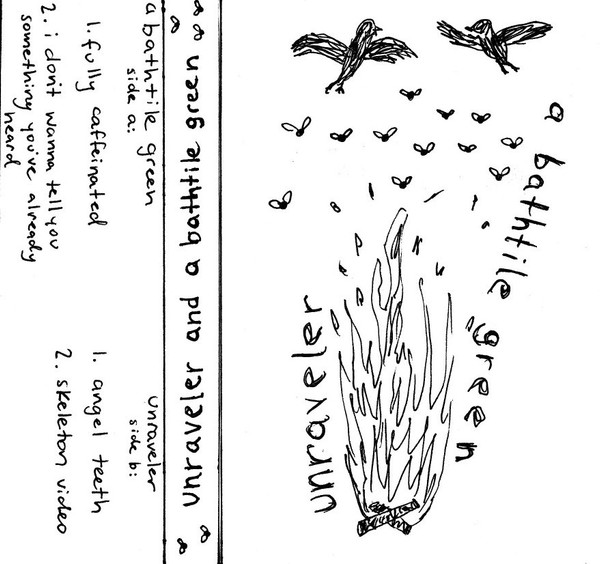 a bathtile green
side a:
1. fully caffeinated
2. i don't wanna tell you
something you've already
heard
unraveler
side b:
1. angel teeth
2. skeleton video
unraveler and a bathtile green
a bathtile green
unraveler